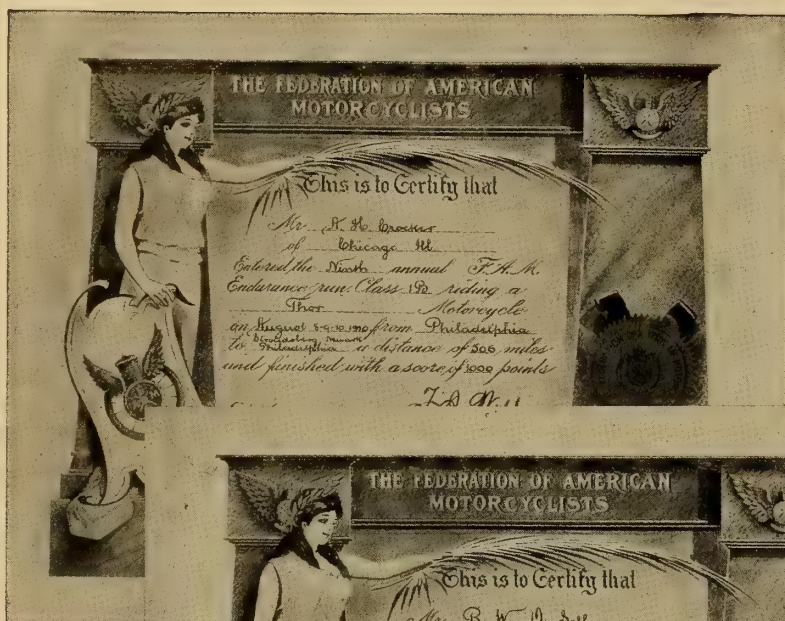 THE FEDERATION OF AMERICAN
MOTORCYCLISTS
This is to Certify that
Mr. A. H. Crocker
of Chicago Ill
Entered the Ninth annual F.A.M.
Endurance run Class riding a
Thor Motorcycle
on August 8-9-10 1910 from Philadelphia
Stroudsburg, Newark
to Philadelphia a distance of 506 miles
and finished with a score of 1000 points
THE FEDERATION OF AMERICAN
MOTORCYCLISTS
This is to Certify that
Mr. B. W.